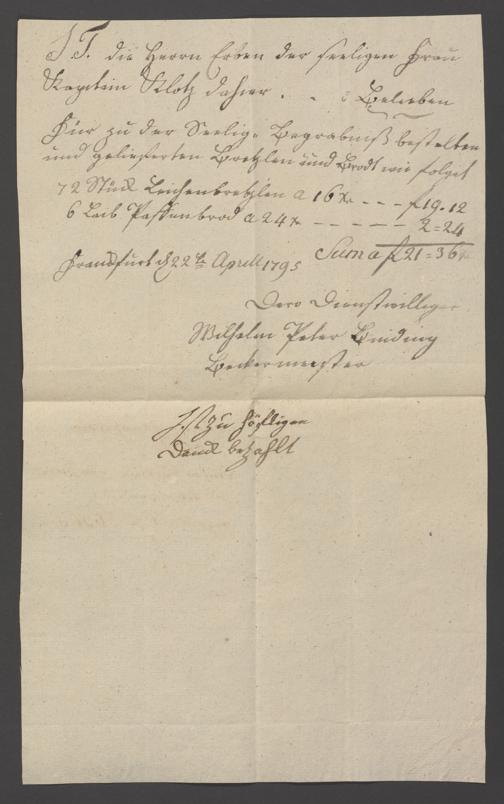 S T. die Herrn Erben der seeligen Frau
Kapitain Klotz dahier . . à Belieben
Für zu der Seelige Begräbniß bestelten
und gelieferten Bretzlen und Brodt wie folget
72 Stück Leichenbretzlen a 16 Xr - - - f 19.12
6 Laib Passenbrod a 24 Xr - - - - - 2=24
Suma f 21=36 Xr
Franckfurt d 22te Aprill 1795
Dero Dienstwilliger
Wilhelm Peter Binding
Beckermeister
Ist zu höfligen
Danck bezahlt